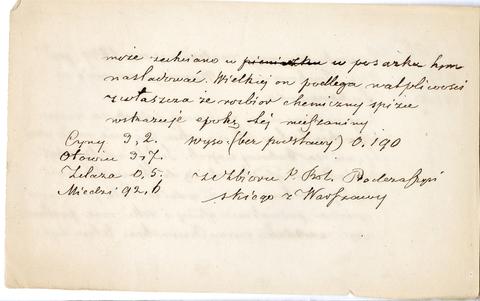 może zechciano w posążku tym
naśladować. Wielkiej on podlega wątpliwości
zwłaszcza że rozbiór chemiczny spiżu
wskazuje epokę tej mieszaniny
Cyny 3,2. wyso. (bez podstawy) 0,190
Ołowiu 3,7.
Żelaza 0,5. ze Zbioru P. Bol. Podczaszyń
Miedzi 92,6 skiego z Warszawy